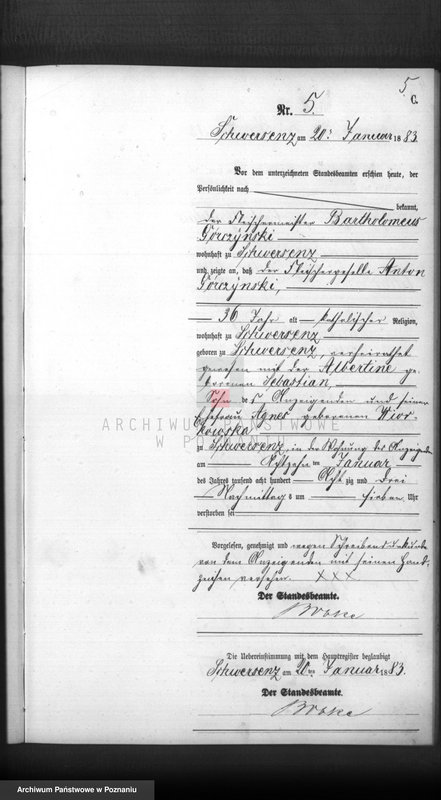 5
C.
Nr. 5.
Schwersenz am 20ten Januar 1883.
Vor dem unterzeichneten Standesbeamten erschien heute, der
Persönlichkeit nach
bekannt,
der Fleischermeister Bartholomeus
Górczyński
wohnhaft zu Schwersenz
und zeigte an, daß der Fleischergeselle Anton
Górczyński,
36 Jahr alt katholischer Religion,
wohnhaft zu Schwersenz
geboren zu Schwersenz, verheirathet
gewesen mit der Albertine ge-
borenen Sebastian,
Sohn des Anzeigenden und seiner
Ehefrau Agnes geborenen Wior-
kowska
ARCHIWUM PAŃSTWOWE
W POZNANIU
zu Schwersenz, in der Wohnung des Anzeigenden
am Achtzehnten Januar
des Jahres tausend acht hundert Acht zig und drei
Nachmittags um sieben Uhr
verstorben sei
Vorgelesen, genehmigt und wegen Schreibensunkunde
von dem Anzeigenden mit seinen Hand-
zeichen versehen. XXX
Der Standesbeamte.
Die Uebereinstimmung mit dem Hauptregister beglaubigt
Schwersenz am 20ten Januar 1883.
Der Standesbeamte.
Archiwum Państwowe w Poznaniu